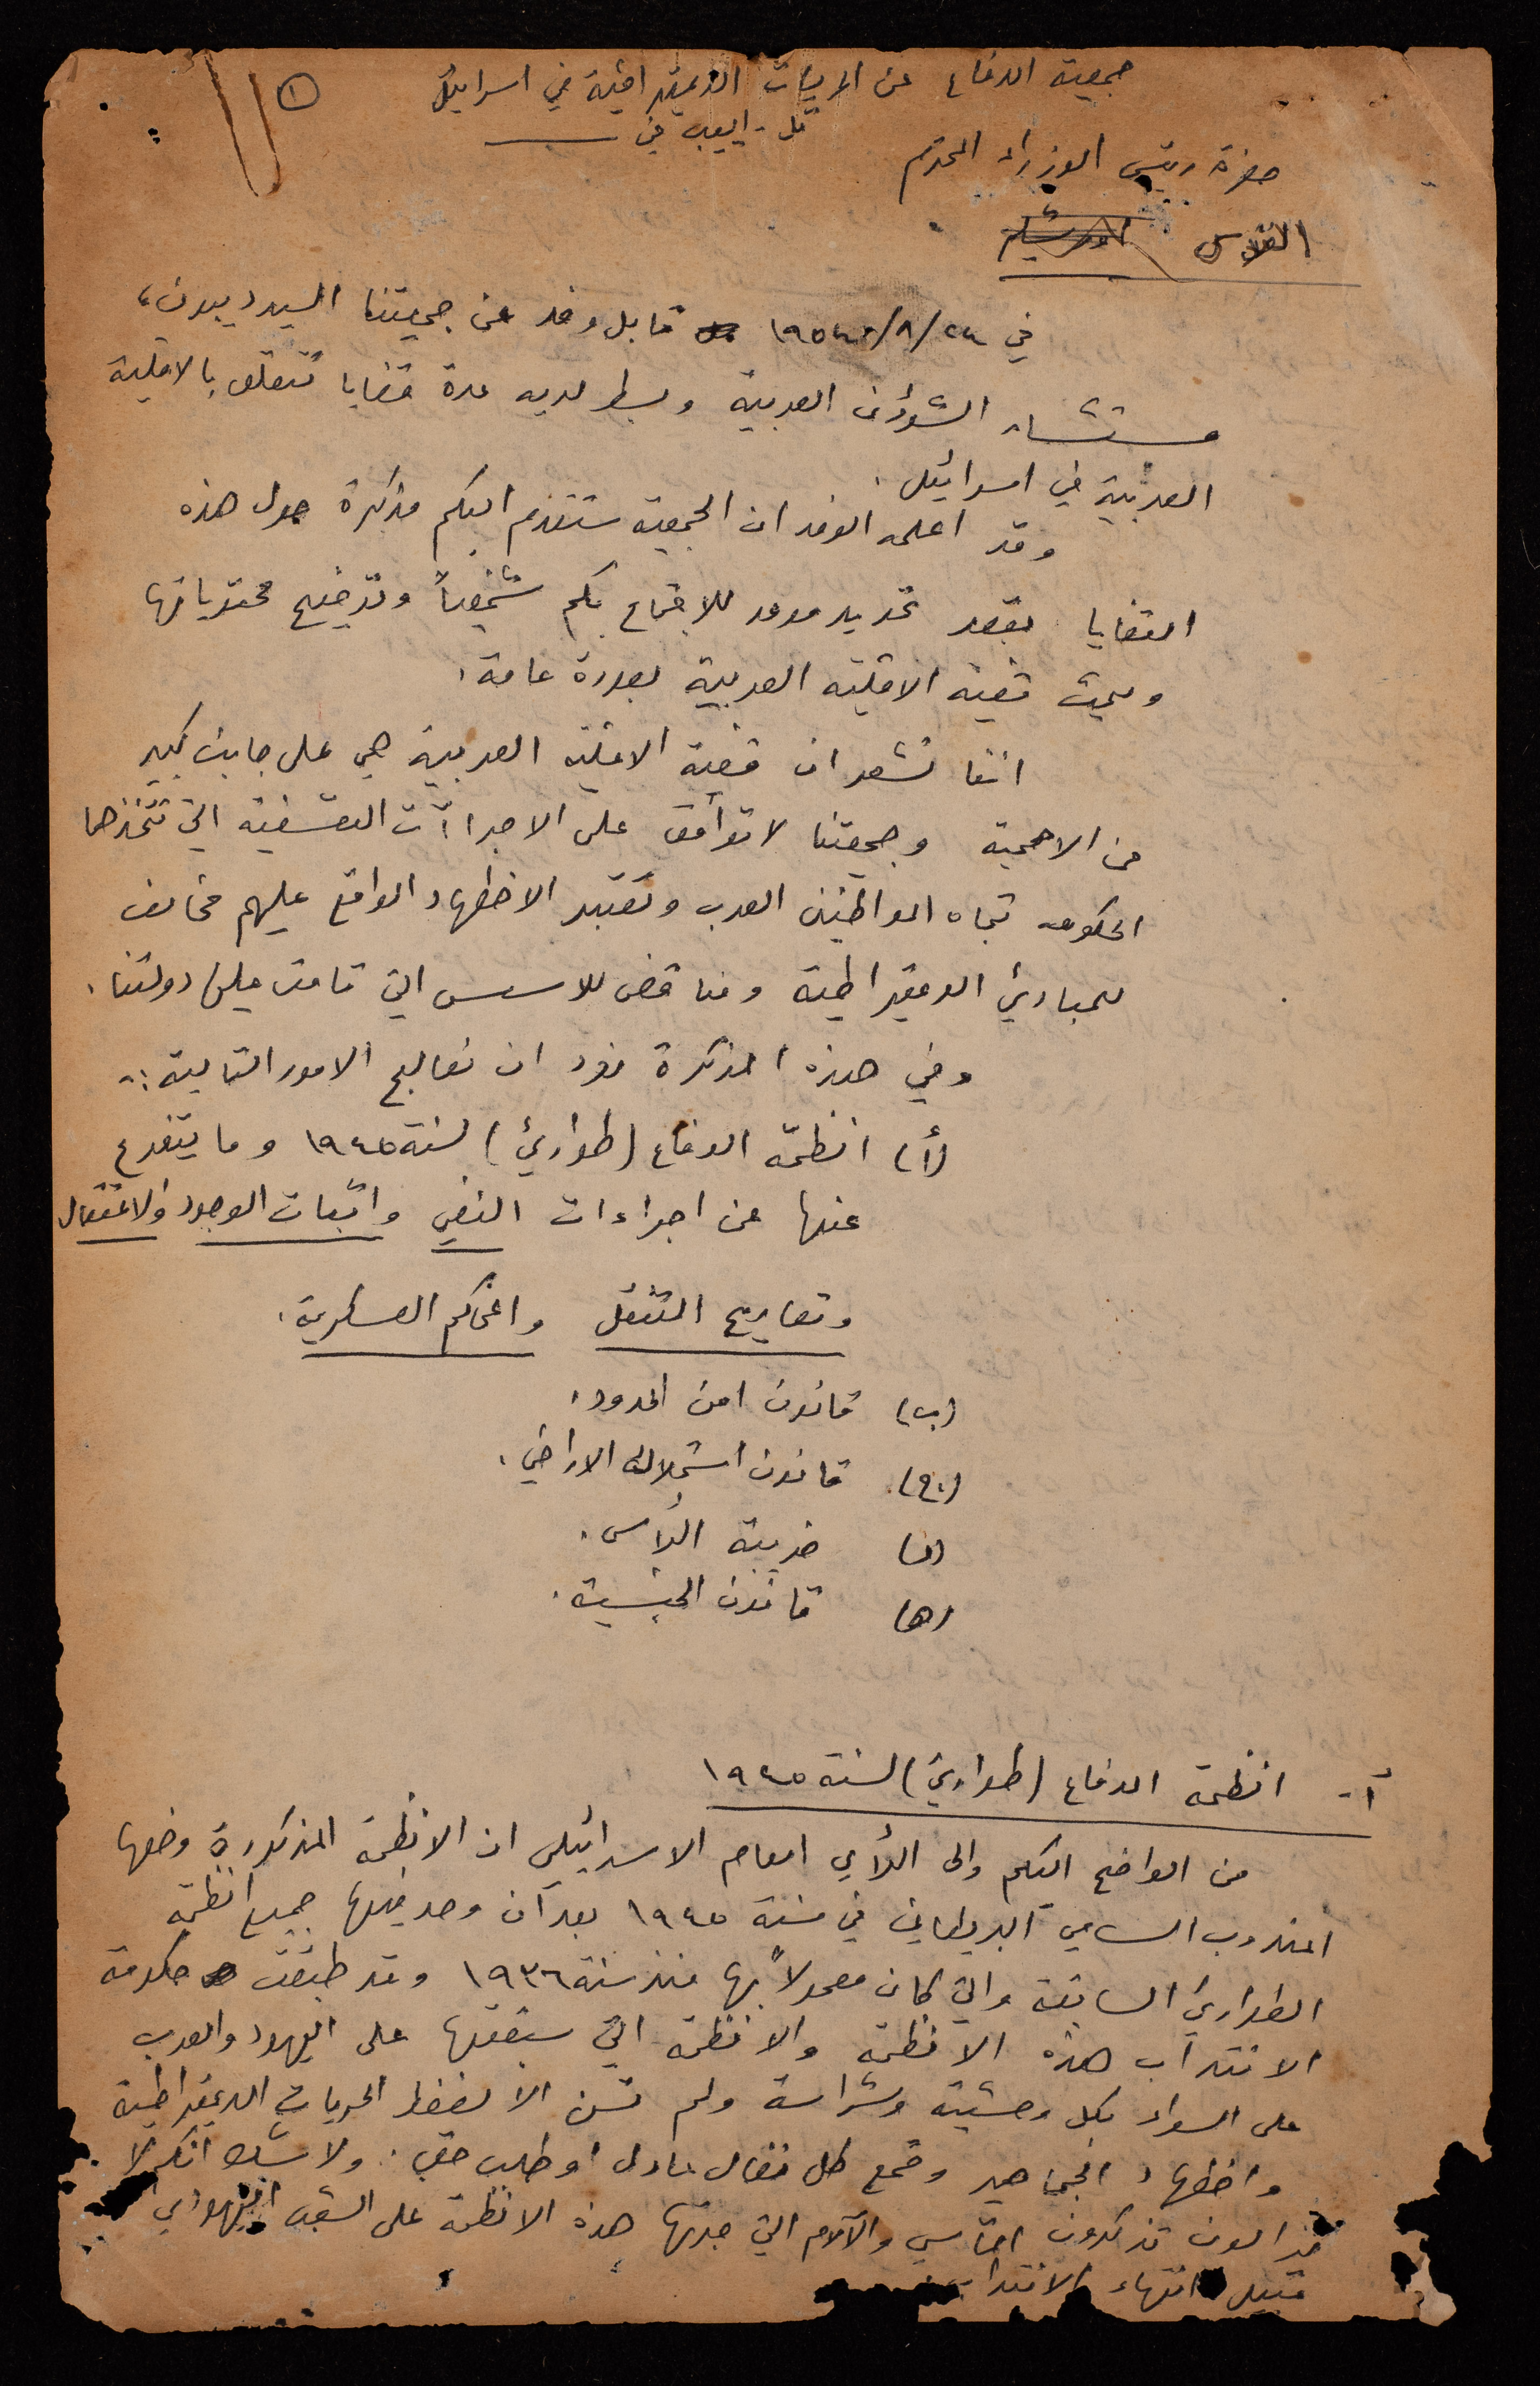 جمعية الدفاع عن الحريات الديمقراطية في اسرائيل
①
تل - ابيب في
حضرة رئيس الوزراء المحترم
القدس اورشليم
في ٢٤/٨/١٩٥٤ قابل وفد عن جمعيتنا السيد ديبون،
مستشار الشؤون العربية وبسط لديه عدة قضايا تتعلق بالاقلية
العربية في اسرائيل.
وقد اعلمه الوفد ان الجمعية ستقدم اليكم مذكرة حول هذه
القضايا بقصد تحديد موعد للاجتماع بكم شخصياً وتوضيح محتوياتها
وبحث قضية الاقلية العربية بصورة عامة.
اننا نشعر ان قضية الاقلية العربية هي على جانب كبير
من الاهمية وجمعيتنا لا توافق على الاجراآت التعسفية التي تتخذها
الحكومه تجاه المواطنين العرب وتعتبر الاضطهاد الواقع عليهم مخالف
للمبادئ الديمقراطية ومناقض للاسس التي قامت عليها دولتنا.
وفي هذه المذكرة نود ان نعالج الامور التالية:-
(أ) انظمة الدفاع (طوارئ) لسنة ١٩٤٥ وما يتفرع
عنها من اجراءات النفي واثبات الوجود والاعتقال
وتصاريح التنقل والمحاكم العسكرية.
(ب) قانون امن الحدود.
(ج) قانون استملاك الاراضي.
(د) ضريبة الرأس.
(هـ) قانون الجنسية.
أ- انظمة الدفاع (طوارئ) لسنة ١٩٤٥
من الواضح اليكم والى الرأي العام الاسرائيلي ان الانظمة المذكورة وضعها
المندوب السامي البريطاني في سنة ١٩٤٥ بعد ان وحد فيها جميع انظمة
الطوارئ السابقة والتي كان معمولاً بها منذ سنة ١٩٣٦ وقد طبقت حكومة
الانتداب هذه الانظمة والانظمة التي سبقتها على اليهود والعرب
على السواء بكل وحشية وشراسة ولم تسن الا لضغط الحريات الديمقراطية
واضطهاد الجماهير وقمع كل نضال عادل او طلب حق. ولا شك انكم لا
تزالون تذكرون المآسي والآلام التي جرتها هذه الانظمة على الشعب اليهودي
قبيل انتهاء الانتداب